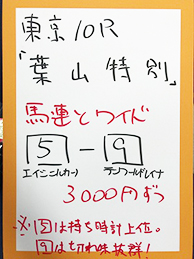 東京10R
「葉山特別」
馬連とワイド
5 - 9
エイシンルカーノ テンワールドレイナ
3000円ずつ
※5は持ち時計上位。
9は切れ味抜群!